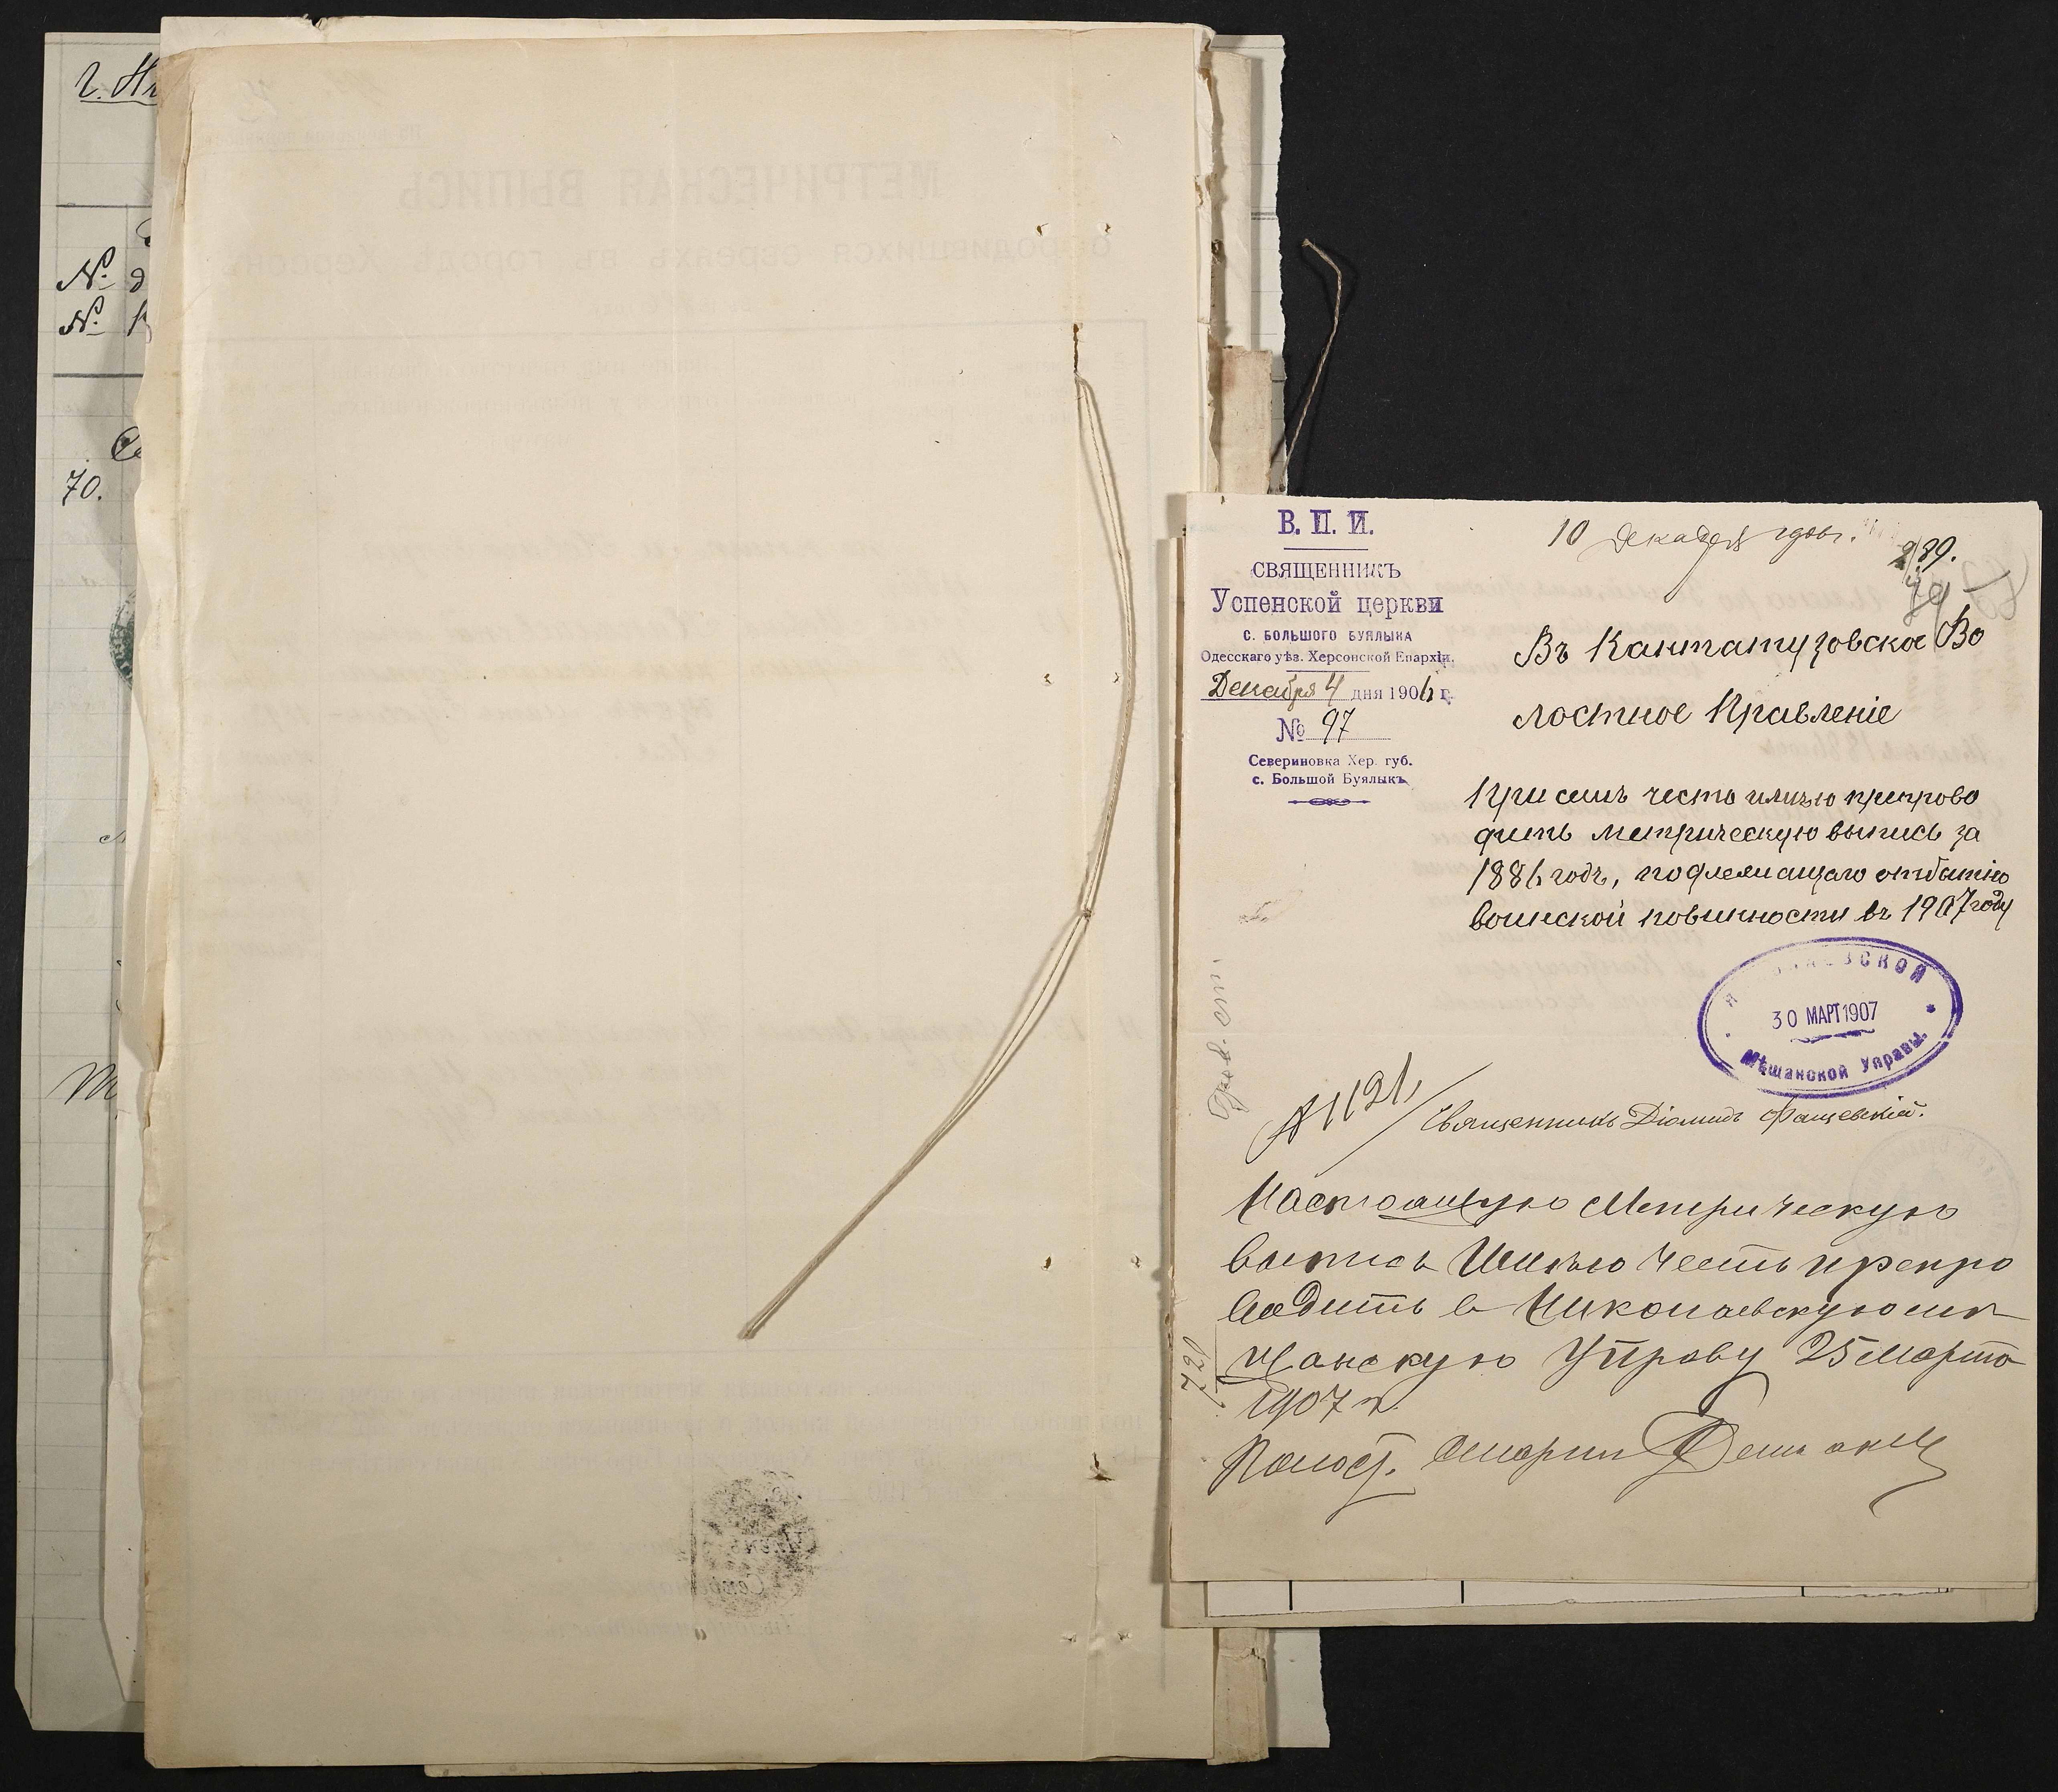 г. Ни
№ д
№
70.
МЕТРИЧЕСКАЯ ВЫПИСЬ
О РОДИВШИХСЯ ЕВРЕЯХЪ ВЪ ГОРОДѢ ХЕРСОНѢ
В. П. И.
СВЯЩЕННИКЪ
Успенской церкви
с. БОЛЬШОГО БУЯЛЫКА
Одесскаго уѣз. Херсонской Епархіи.
Декабря 4 дня 1906 г.
№ 97
Севериновка Хер. губ.
с. Большой Буялыкъ
10 декабря 1906г.
2189.
Въ Кантакузовское Во
лостное Правленіе
При семъ честь имѣю препрово
дить метрическую выпись за
1886 годъ, подлежащаго отбытію
воинской повинности въ 1907 году
30 МАРТ 1907
Мѣщанской Управы.
Священникъ Діомидъ Фащевскій.
Настоящую Метрическую
выпись Имѣю честь препро
водить в Николаевскую мѣ
щанскую Управу 25 Марта
1907 г.
721